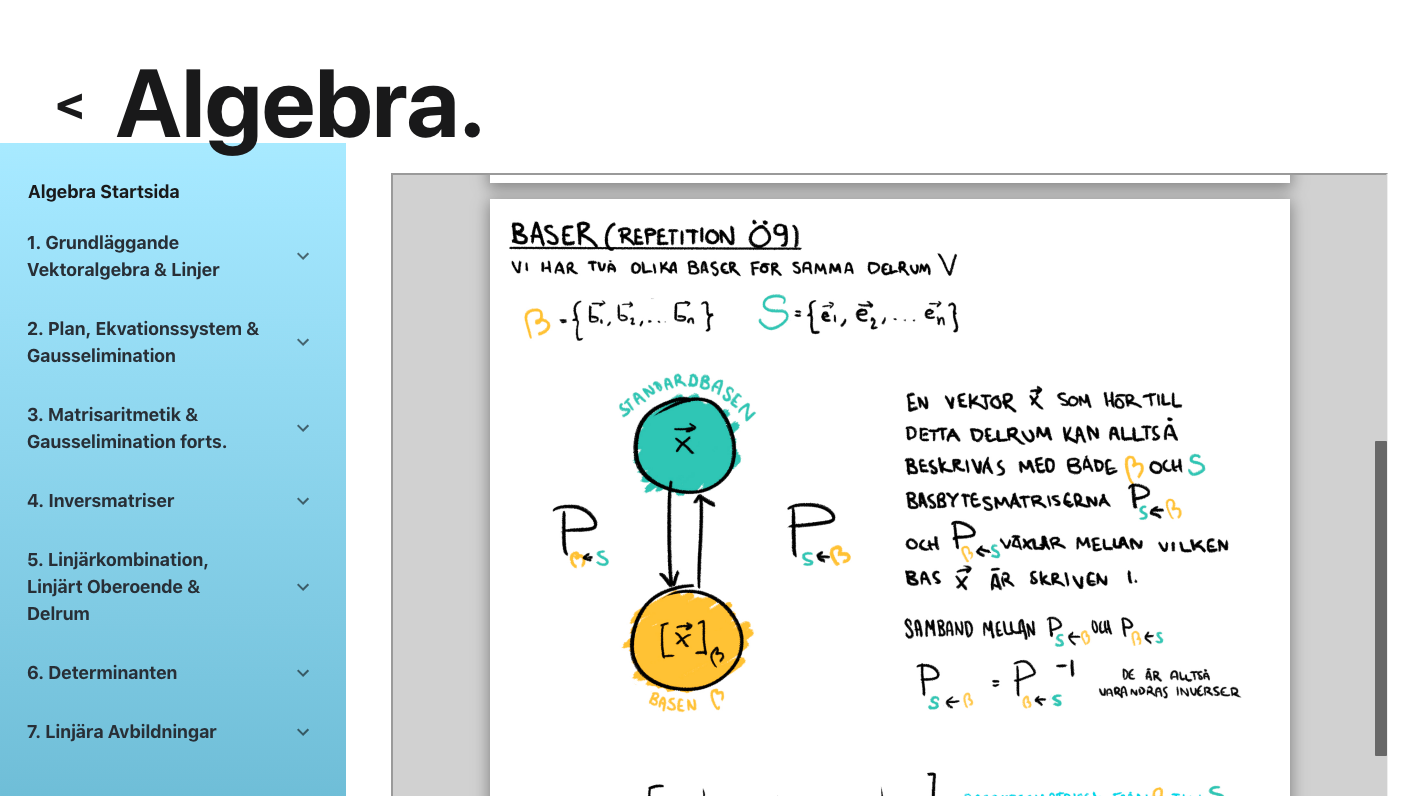 < Algebra.
Algebra Startsida
1. Grundläggande
Vektoralgebra & Linjer
2. Plan, Ekvationssystem &
Gausselimination
3. Matrisaritmetik &
Gausselimination forts.
4. Inversmatriser
5. Linjärkombination,
Linjärt Oberoende &
Delrum
6. Determinanten
7. Linjära Avbildningar
BASER (REPETITION Ö9)
VI HAR TVÅ OLIKA BASER FÖR SAMMA DELRUM V
β = {b⃗₁, b⃗₂, ... b⃗ₙ} S = {e⃗₁, e⃗₂, ... e⃗ₙ}
STANDARDBASEN
x⃗
P β←S
P S←β
[x⃗]β
BASEN β
EN VEKTOR x⃗ SOM HÖR TILL
DETTA DELRUM KAN ALLTSÅ
BESKRIVAS MED BÅDE β OCH S
BASBYTESMATRISERNA P S←β
OCH P β←S VÄXLAR MELLAN VILKEN
BAS x⃗ ÄR SKRIVEN I.
SAMBAND MELLAN P S←β OCH P β←S
P S←β = P β←S ⁻¹
DE ÄR ALLTSÅ
VARANDRAS INVERSER